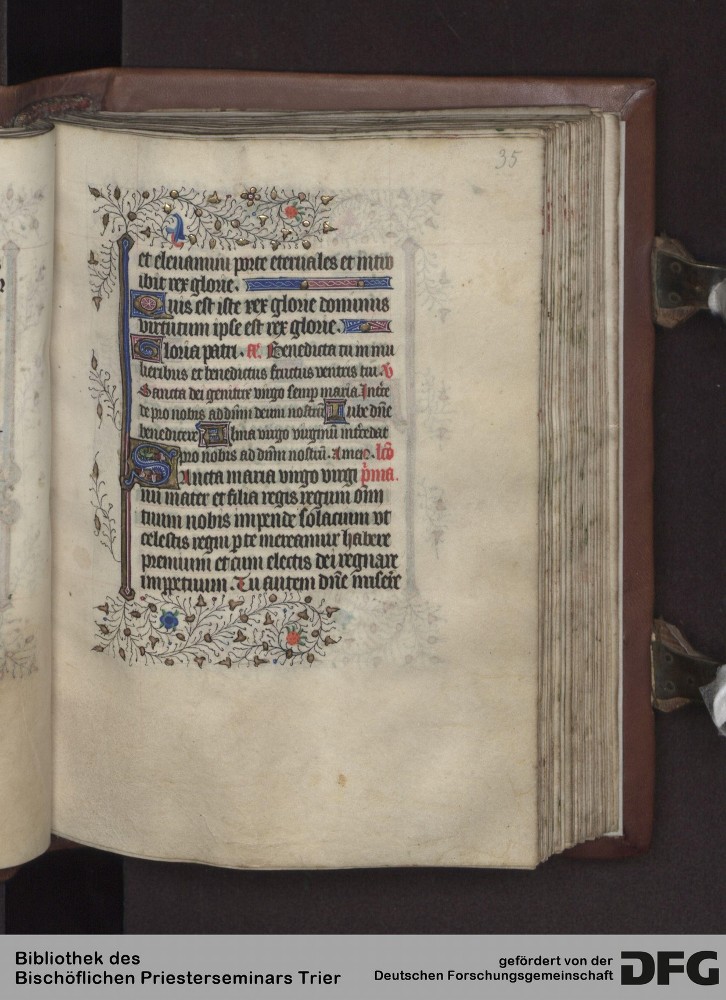 35
et eleuamini porte eternales et intro
ibit rex glorie.
Quis est iste rex glorie dominus
virtutum ipse est rex glorie.
Gloria patri. a. Benedicta tu in mu
lieribus et benedictus fructus ventris tui. v
Sancta dei genitrix virgo semp maria. Intce
de pro nobis ad dnm deum nostrum Iube dne
benedicere Alma virgo virginum intcedat
pro nobis ad dnm nostrū. Amen. lco
Sancta maria virgo virgi pma.
num mater et filia regis regum omn
tuum nobis impende solacium vt
celestis regni p te mereamur habere
premium et cum electis dei regnare
impetuum. Tu autem dne misere
Bibliothek des
Bischöflichen Priesterseminars Trier
gefördert von der
Deutschen Forschungsgemeinschaft
DFG